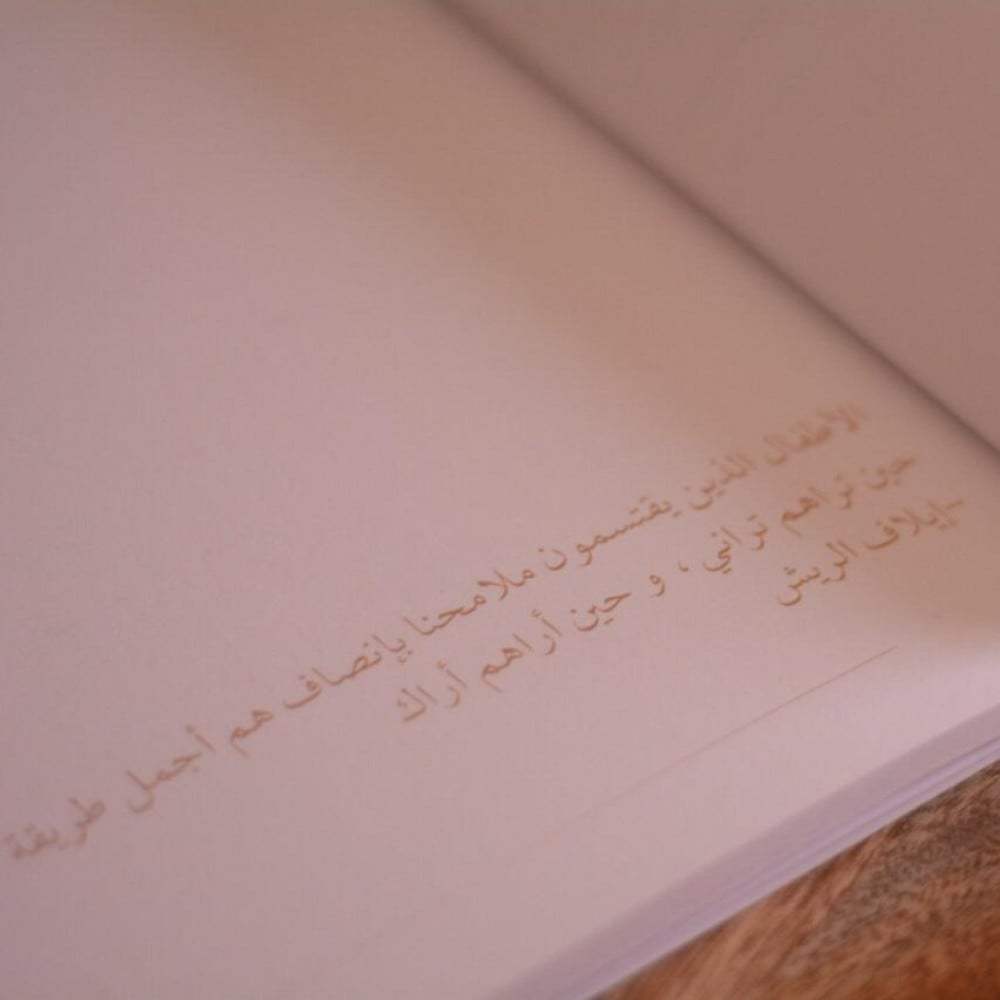 الأطفال الذين يقتسمون ملامحنا بإنصاف هم أجمل طريقة
حين تراهم تراني ، و حين أراهم أراك
-إيلاف الريش